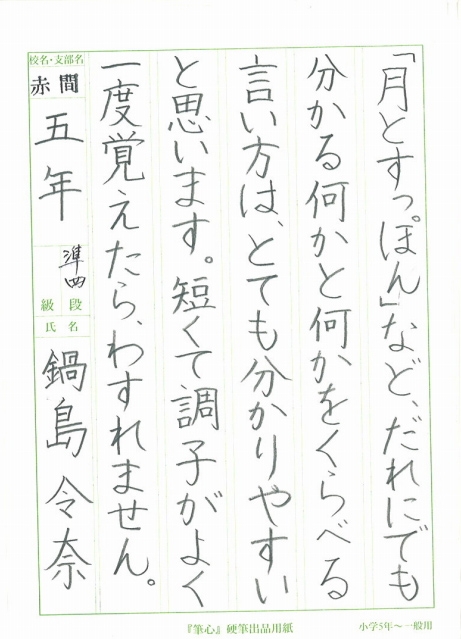 「月とすっぽん」など、だれにでも
分かる何かと何かをくらべる
言い方は、とても分かりやすい
と思います。短くて調子がよく
一度覚えたら、わすれません。
校名・支部名
赤間
五年
準四
級 段
氏名
鍋島令奈
『筆心』硬筆出品用紙
小学5年〜一般用